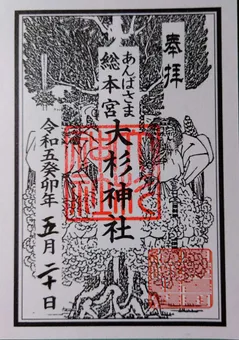 奉拝
あんばさま
総本宮
大杉神社
令和五癸卯年 五月 二十日